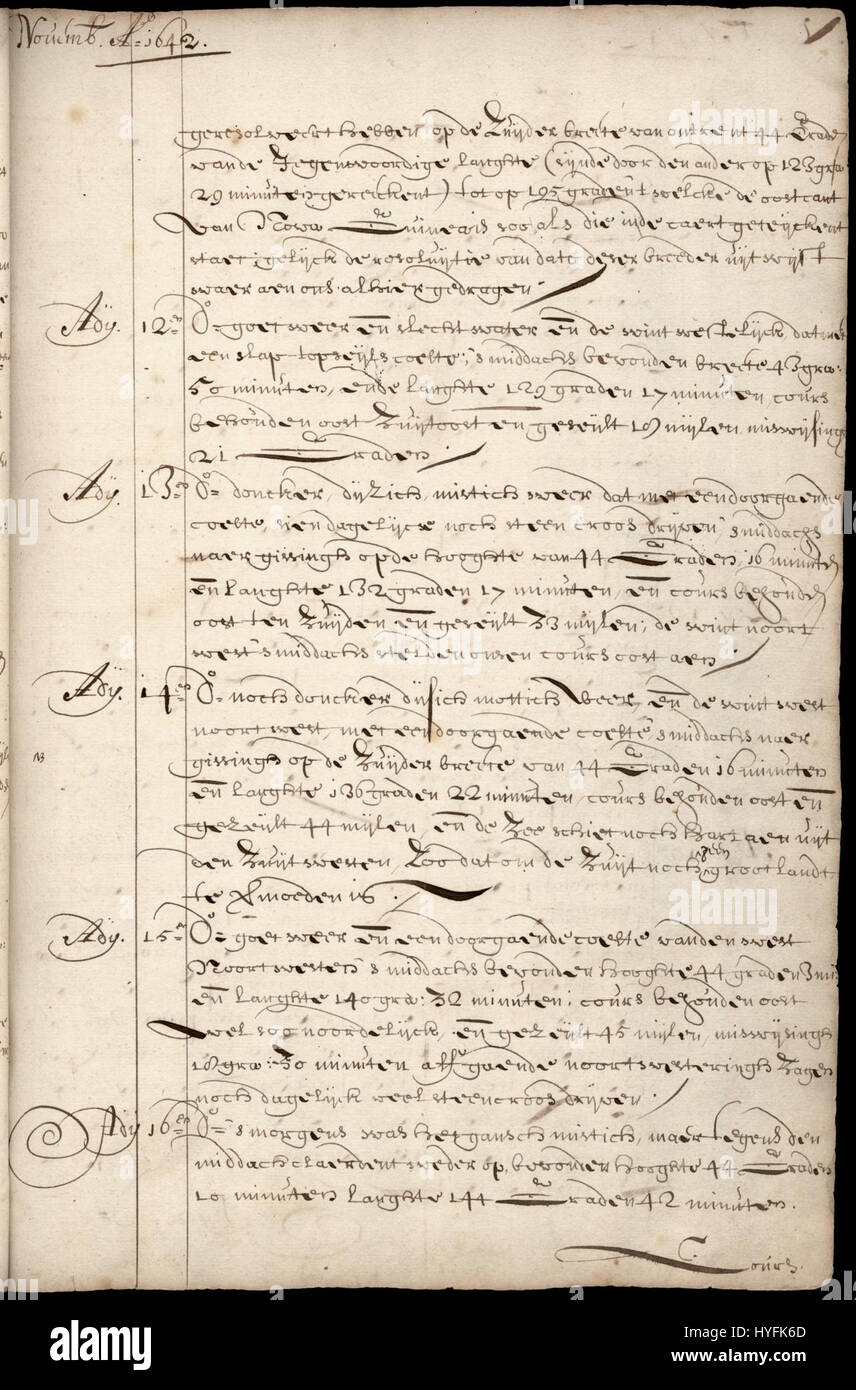 Novemb. Aº 1642.
geresolveert hebben op de Zuijder breete van ontrent 44 Graden
vande Jegenwoordige langhte (sijnde door den ander op 123 gra:
29 minuten gereeckent) tot op 195 graden t welcke de oostcant
van Nova Guinea is soo als die inde caert geteijckent
staet; gelijck de resoluijtie van dato deser breeder uijtwijst
waer aen ons alhier gedragen
Adij. 12en Dº goet weer en slecht water en de wint westelijck dat met
een slap topseijls coelte, smiddachs bevonden breete 43 gra:
50 minuten, ende langhte 129 graden 17 minuten, cours
behouden oost Zuijtoost en geseijlt 19 mijlen, miswijsingh
21 Graden
Adij. 13en Dº doncker, dijzich, mistich weer dat met een doorgaende
coelte, sien dagelijcx noch steen croos drijven, smiddachs
naer gissingh op de hooghte van 44 Graden 16 minuten
en langhte 132 graden 17 minuten, en cours behouden
oost ten Zuijden en geseijlt 33 mijlen, de wint noort
west smiddachs stelden onsen cours oost aen
Adij. 14en Dº noch doncker dijsich mottich weer, en de wint west
noortwest, met een doorgaende coelte smiddachs naer
gissingh op de Zuijder breete van 44 Graden 16 minuten
en langhte 136 graden 22 minuten, cours behouden oost en
gezeijlt 44 mijlen, en de Zee schiet noch hart aen uijt
den Zuijtwesten, Soo dat om de Zuijt noch geen groot landt
te vermoeden is
Adij. 15en Dº goet weer en een doorgaende coelte vanden west
Noortwesten smiddachs bevonden hooghte 44 graden 3 mi:
en langhte 140 gra: 32 minuten, cours behouden oost
wel soo noordelijck, en gezeijlt 45 mijlen, miswijsingh
18 gra: 30 minuten affgaende noortwesteringh Zagen
noch dagelijck veel steencroos drijven
Adij 16en Dº smorgens was het gansch mistich, maer tegens den
middach claerdent weder op, bevonden hooghte 44 Graden
10 minuten langhte 144 Graden 42 minuten.
Cours
alamy stock photo
HYFK6D
www.alamy.com